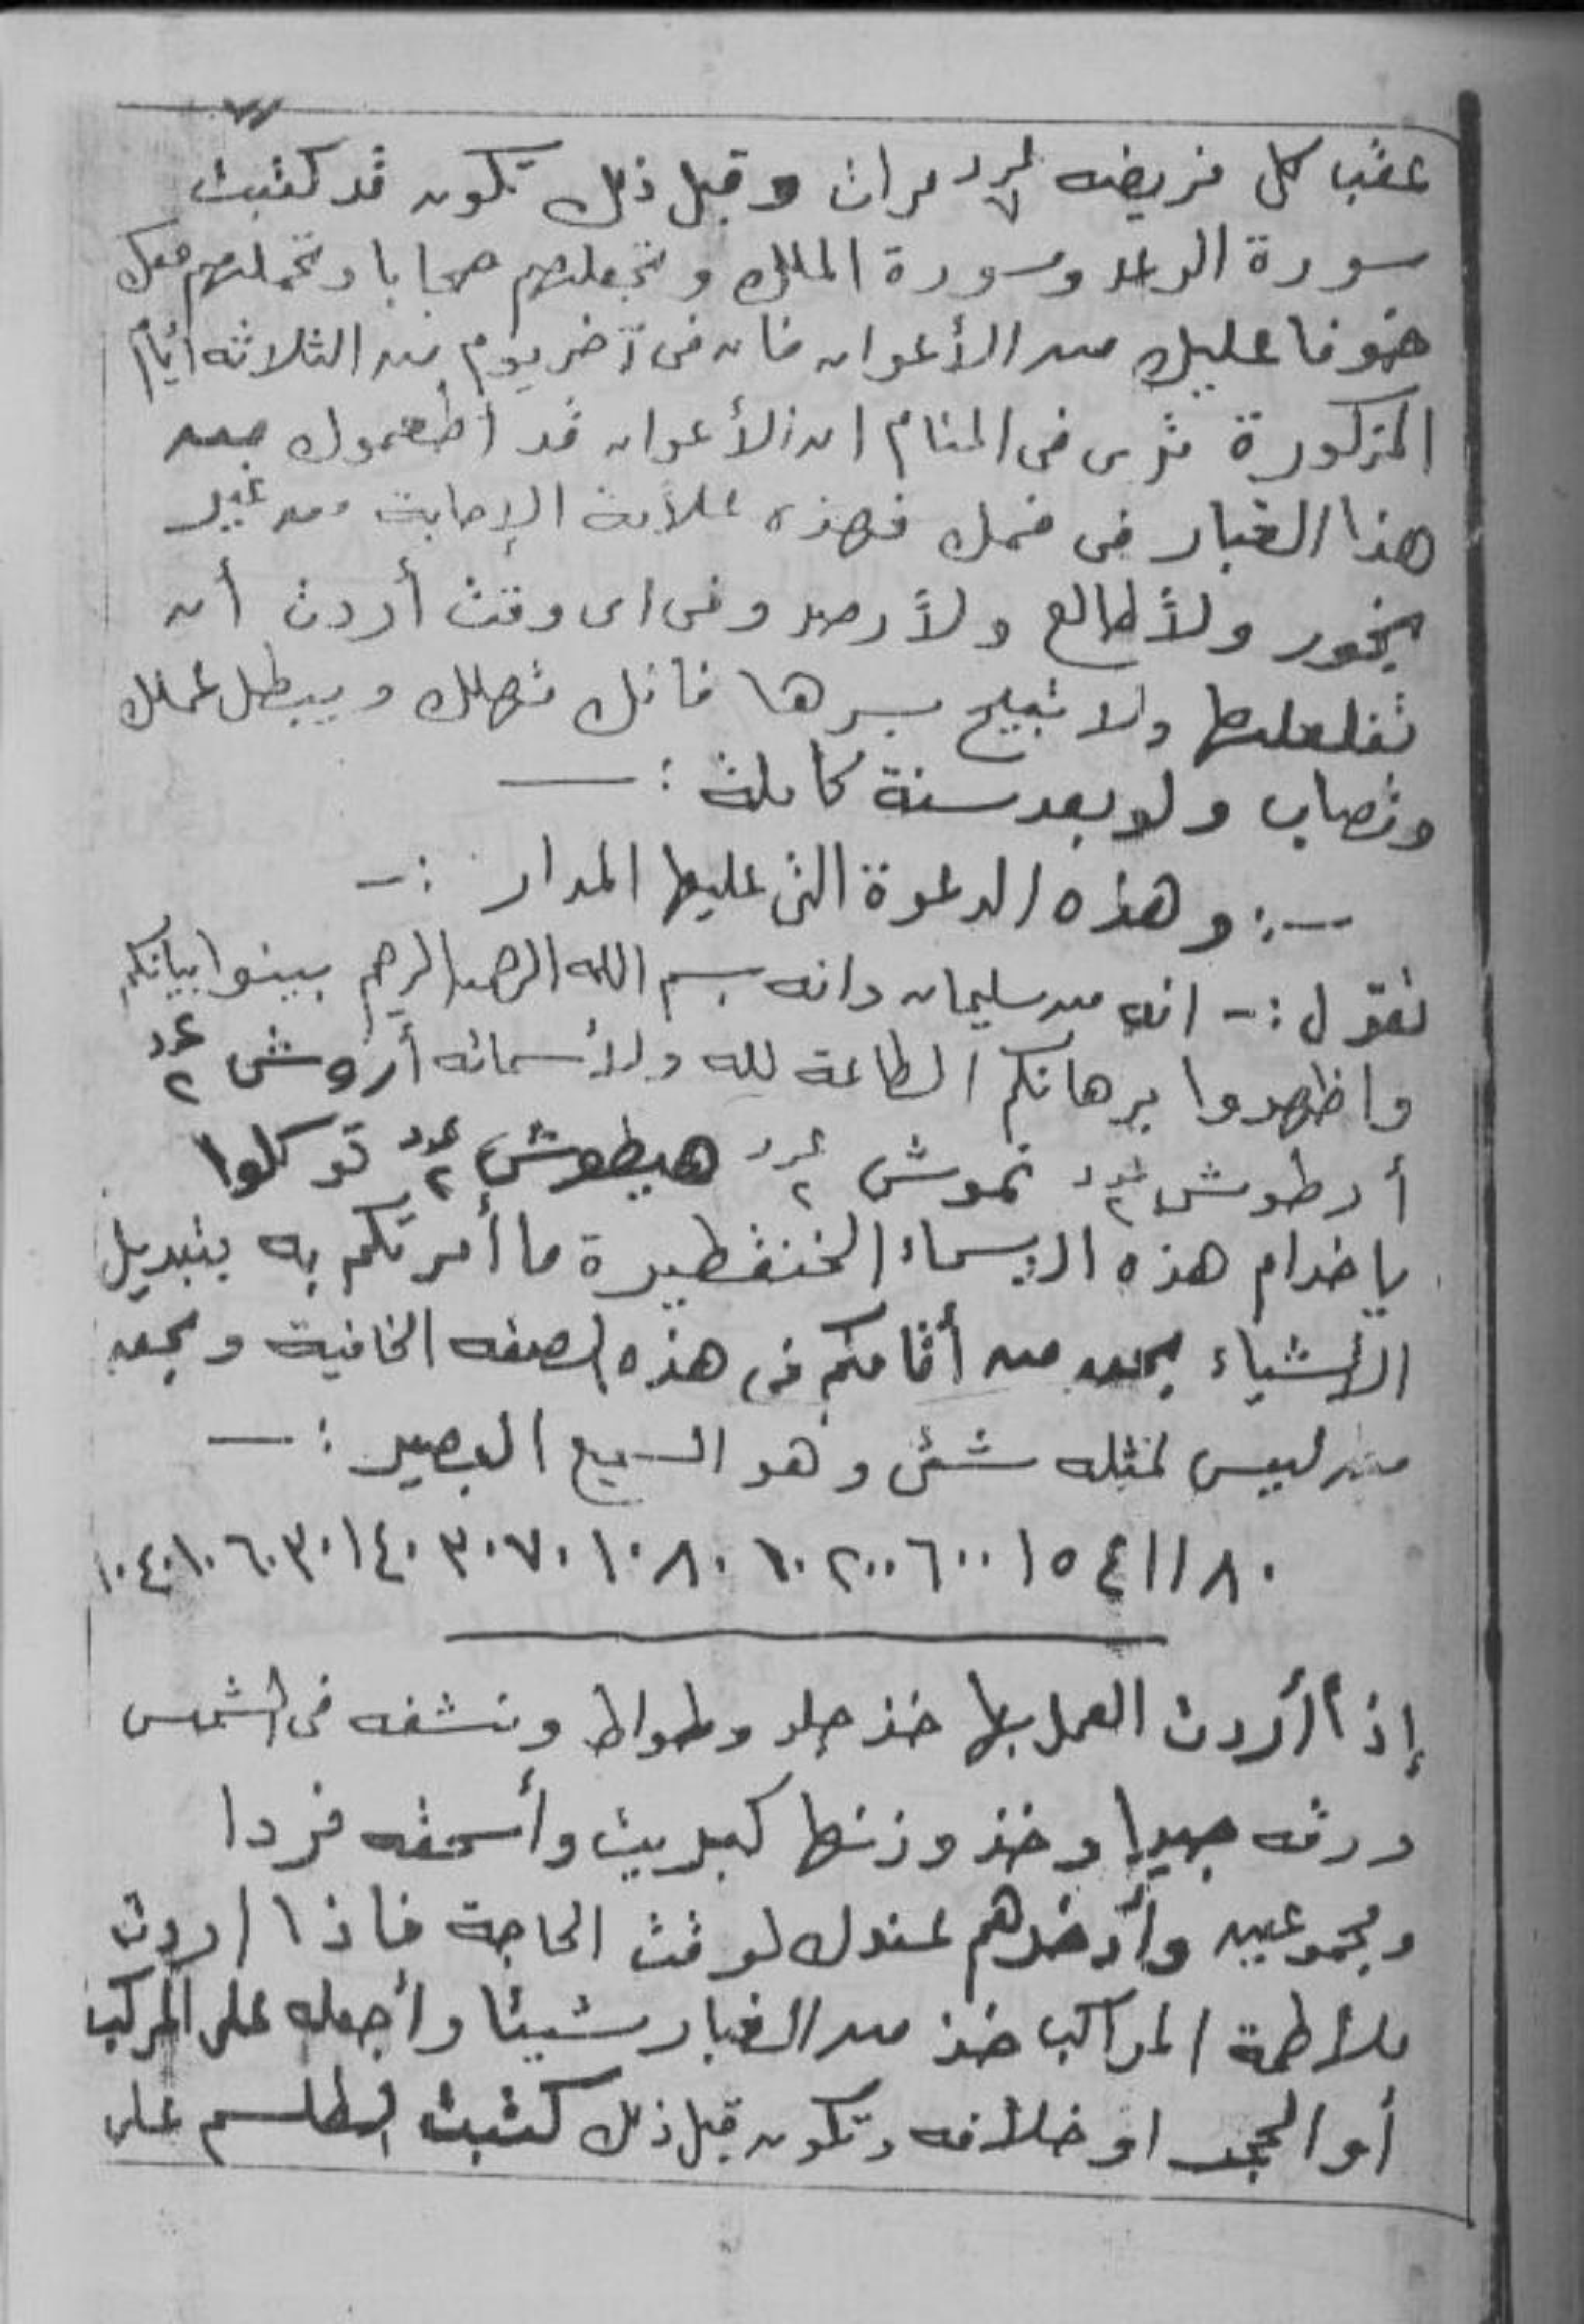 عقب كل فريضه عدد ٧ مرات وقبل ذلك تكون قد كتبت
سورة الرعد وسورة الملك وتجعلهم حجابا وتحملهم معك
خوفا عليك من الأعوان فان فى آخر يوم من الثلاثه أيام
المذكورة ترى فى المنام ان الأعوان قد اطعموك من
هذا الغبار فى فمك فهذه علامة الإجابة من غير
بخور ولا طالع ولا رصد وفى اى وقت أردت أن
تفعلها ولا تبيح بسرها فانك تهلك ويبطل عملك
وتصاب ولو بعد سنة كاملة :ـ
ـ: وهذه الدعوة التى عليها المدار :ـ
تقول :ـ انه من سليمان وانه بسم الله الرحمن الرحيم بينوا بيانكم
واظهروا برهانكم الطاعة لله ولأسمائه أزوش عدد ٢
أرطوش عدد ٢ نموش عدد ٢ هيطوش عدد ٢ توكلوا
ياخدام هذه الاسماء الخنفطيرة ما أمرتكم به بتبديل
الأشياء بحق من أقامكم فى هذه الصفه الخافية وبحق
من ليس كمثله شئ وهو السميع البصير :ـ
٨٠ ١ ١ ٤ ٥ ١ ٦٠٠ ٢٠٠ ١٠ ٨٠ ١٠ ٧٠ ٣٠ ٤٠ ١ ٣٠ ٦٠ ١٠ ٤٠ ١٠
إذا أردت العمل بها خذ جلد وطواط ونشفه فى الشمس
ودقه جيدا وخذ وزنها كبريت وأسحقه فردا
ومجموعين وأدخرهم عندك لوقت الحاجة فاذا اردت
ملاطمة المراكب خذ من الغبار شيئا وأجعله على المركب
أو الحجر او خلافه وتكون قبل ذلك كتبت الطلسم على